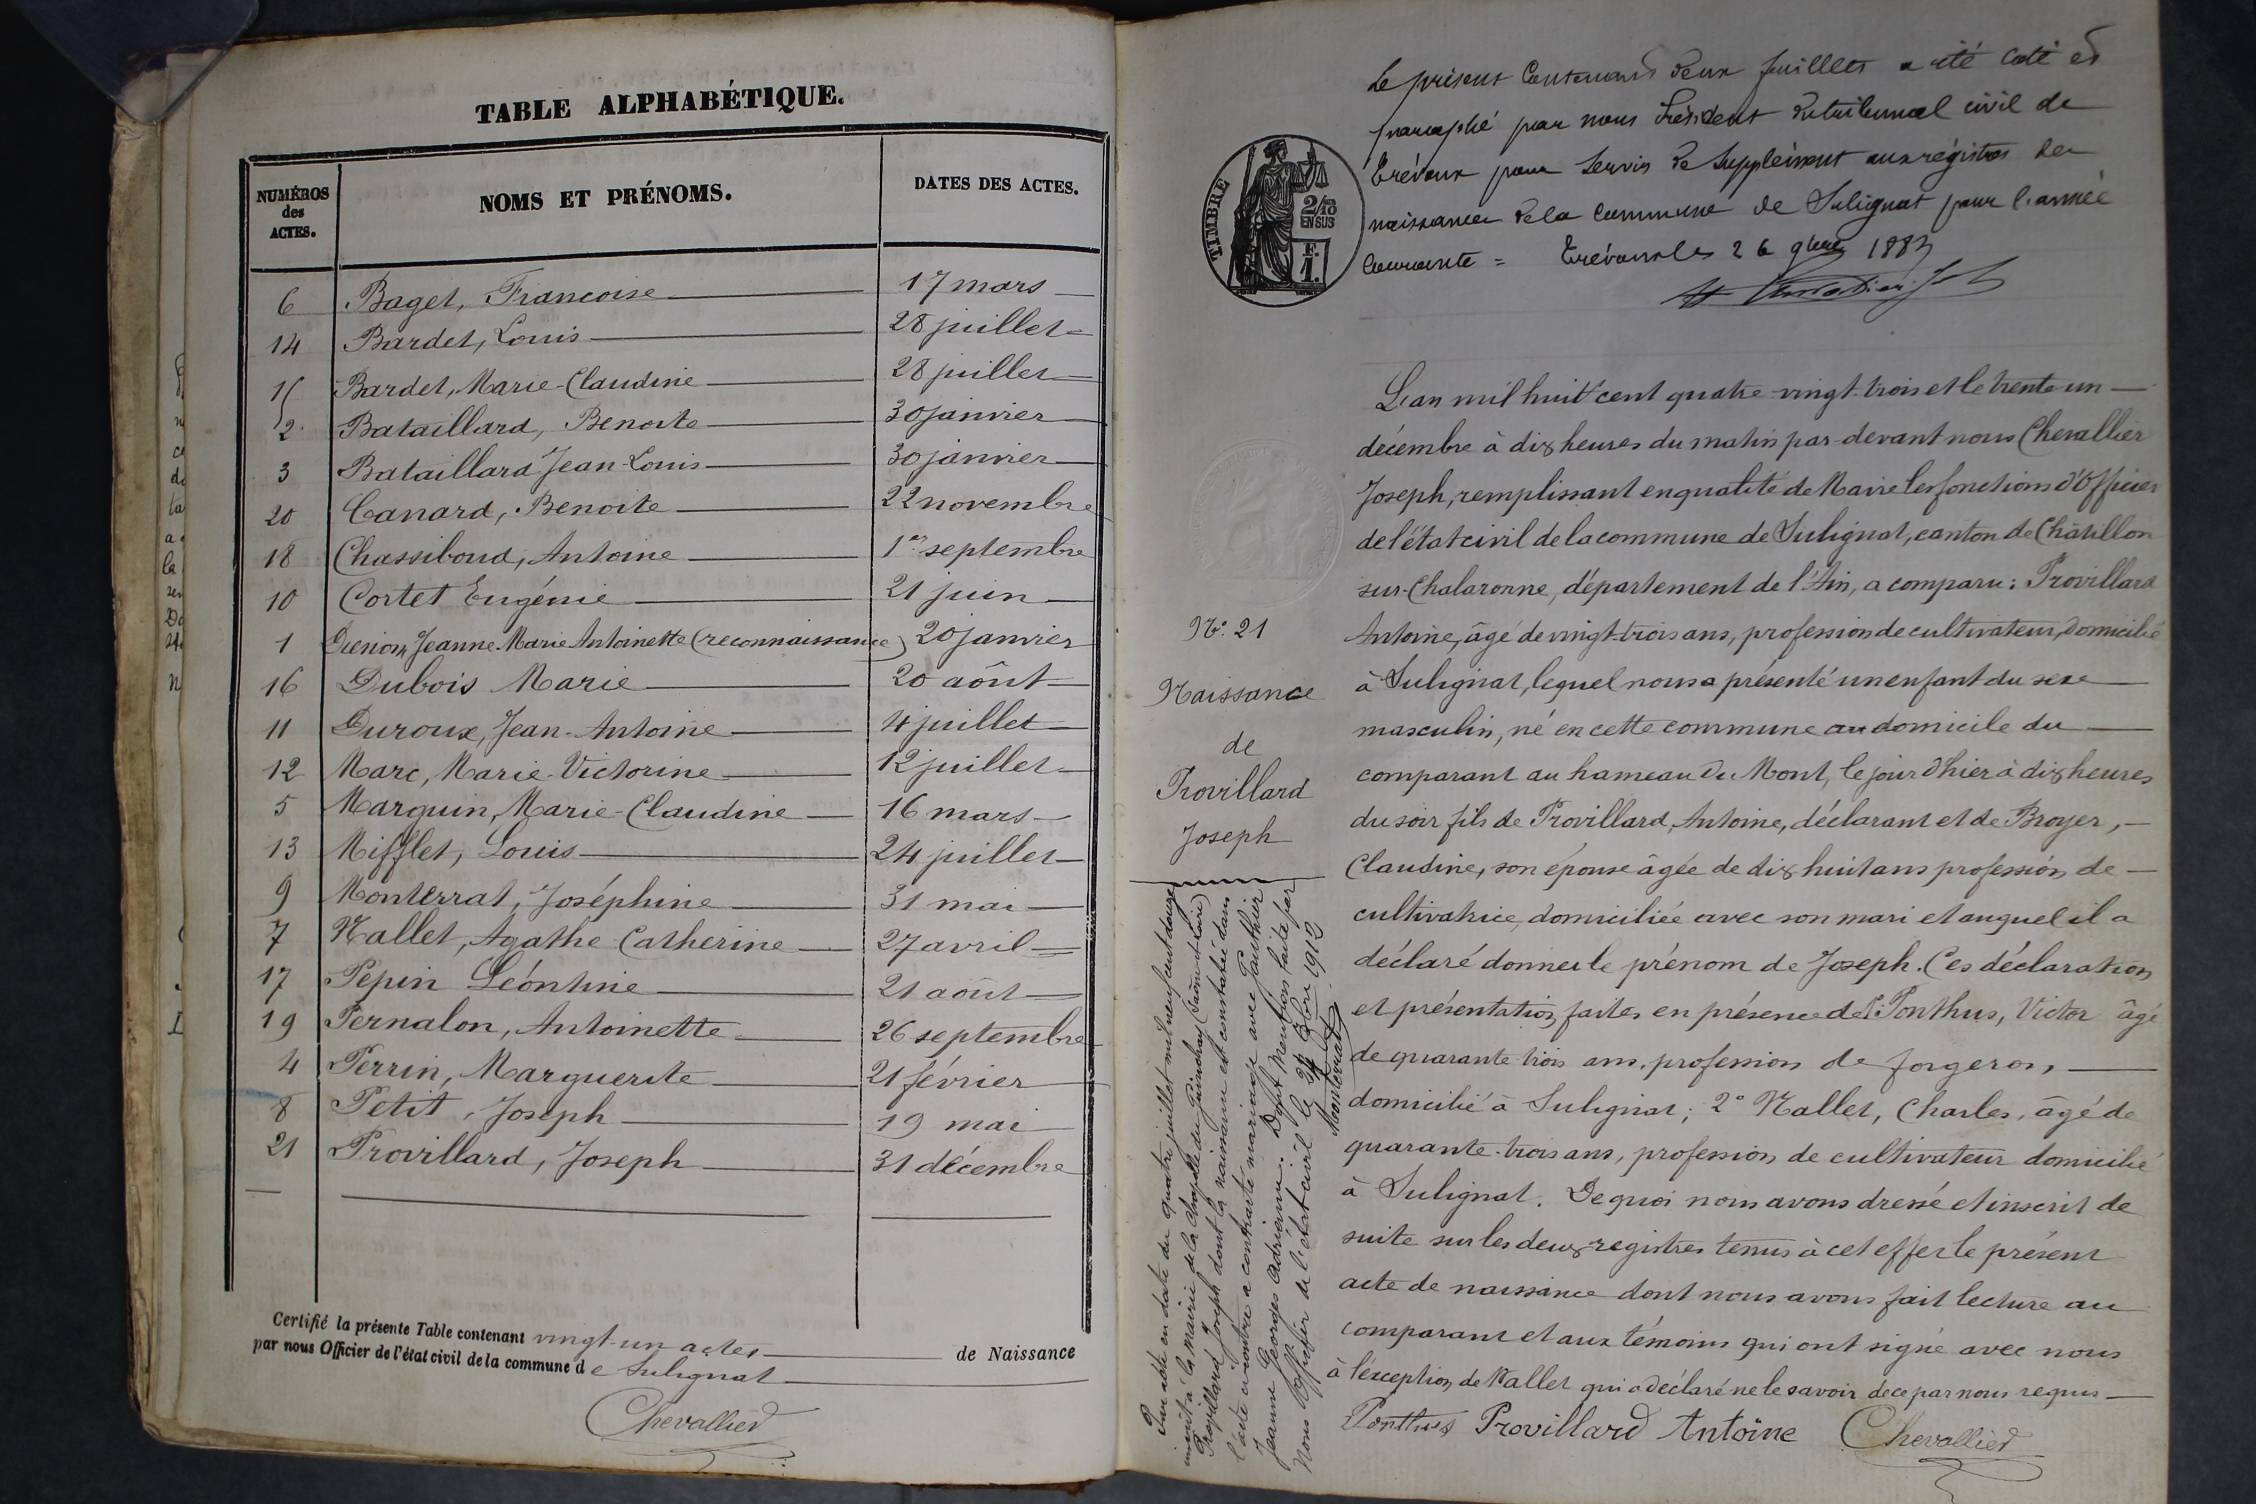 TABLE ALPHABÉTIQUE.
NUMÉROS des ACTES. NOMS ET PRÉNOMS. DATES DES ACTES.
6 Baget, Françoise 17 mars
14 Bardet, Louis 28 juillet
15 Bardet, Marie-Claudine 28 juillet
2 Bataillard, Benoite 30 janvier
3 Bataillard Jean-Louis 30 janvier
20 Canard, Benoite 22 novembre
18 Chassiboud, Antoine 1er septembre
10 Cortet Eugénie 21 juin
1 Jeanne-Marie Antoinette (reconnaissance) 20 janvier
16 Dubois Marie 20 août
11 Duroux, Jean-Antoine 4 juillet
12 Marc, Marie-Victorine 12 juillet
5 Marguin, Marie-Claudine 16 mars
13 Mifflet, Louis 24 juillet
9 Monterrat, Joséphine 31 mai
7 Nallet, Agathe Catherine 27 avril
17 Pépin Léontine 21 août
19 Pernalon, Antoinette 26 septembre
4 Perrin, Marguerite 21 février
8 Petit, Joseph 19 mai
21 Provillard, Joseph 31 décembre
Certifié la présente Table contenant vingt-un actes de Naissance
par nous Officier de l'état civil de la commune de Sulignat
Chevallier
Le présent contenant deux feuillets a été coté et
paraphé par nous Président du tribunal civil de
Trévoux pour servir de supplément aux régistres des
naissances de la commune de Sulignat pour l'année
courante = Trévoux les 26 9bre 1883
TIMBRE
2/10
EN SUS
F.
1.
L'an mil huit cent quatre-vingt-trois et le trente un
décembre à dix heures du matin par-devant nous Chevallier
Joseph, remplissant en qualité de Maire les fonctions d'Officier
de l'état civil de la commune de Sulignat, canton de Châtillon
sur-Chalaronne, département de l'Ain, a comparu: Provillard
Antoine, âgé de vingt-trois ans, profession de cultivateur, domicilié
à Sulignat, lequel nous a présenté un enfant du sexe
masculin, né en cette commune au domicile du
comparant au hameau du Mont, le jour d'hier à dix heures
du soir fils de Provillard, Antoine, déclarant et de Broyer,
Claudine, son épouse âgée de dix huit ans profession de
cultivatrice, domiciliée avec son mari et auquel il a
déclaré donner le prénom de Joseph. Ces déclaration
et présentation faites en présence de 1° Ponthus, Victor âgé
de quarante-trois ans, profession de forgeron,
domicilié à Sulignat; 2° Nallet, Charles, âgé de
quarante-trois ans, profession de cultivateur domicilié
à Sulignat. De quoi nous avons dressé et inscrit de
suite sur les deux registres tenus à cet effet le présent
acte de naissance dont nous avons fait lecture au
comparant et aux témoins qui ont signé avec nous
à l'exception de Nallet qui a déclaré ne le savoir de ce par nous requis
Ponthus Provillard Antoine Chevallier
No. 21
Naissance
de
Provillard
Joseph
Par acte en date du quatre juillet mil neuf cent douze
inscrit à la mairie de la Chapelle du Guinchay (Saône-et-Loire)
Provillard Joseph dont la naissance est constatée dans
l'acte ci-contre a contracté mariage avec Gauthier
Jeanne Georges Adrienne. Dont Mention faite par
Nous Officier de l'état civil le 24 7bre 1912
Monterrat